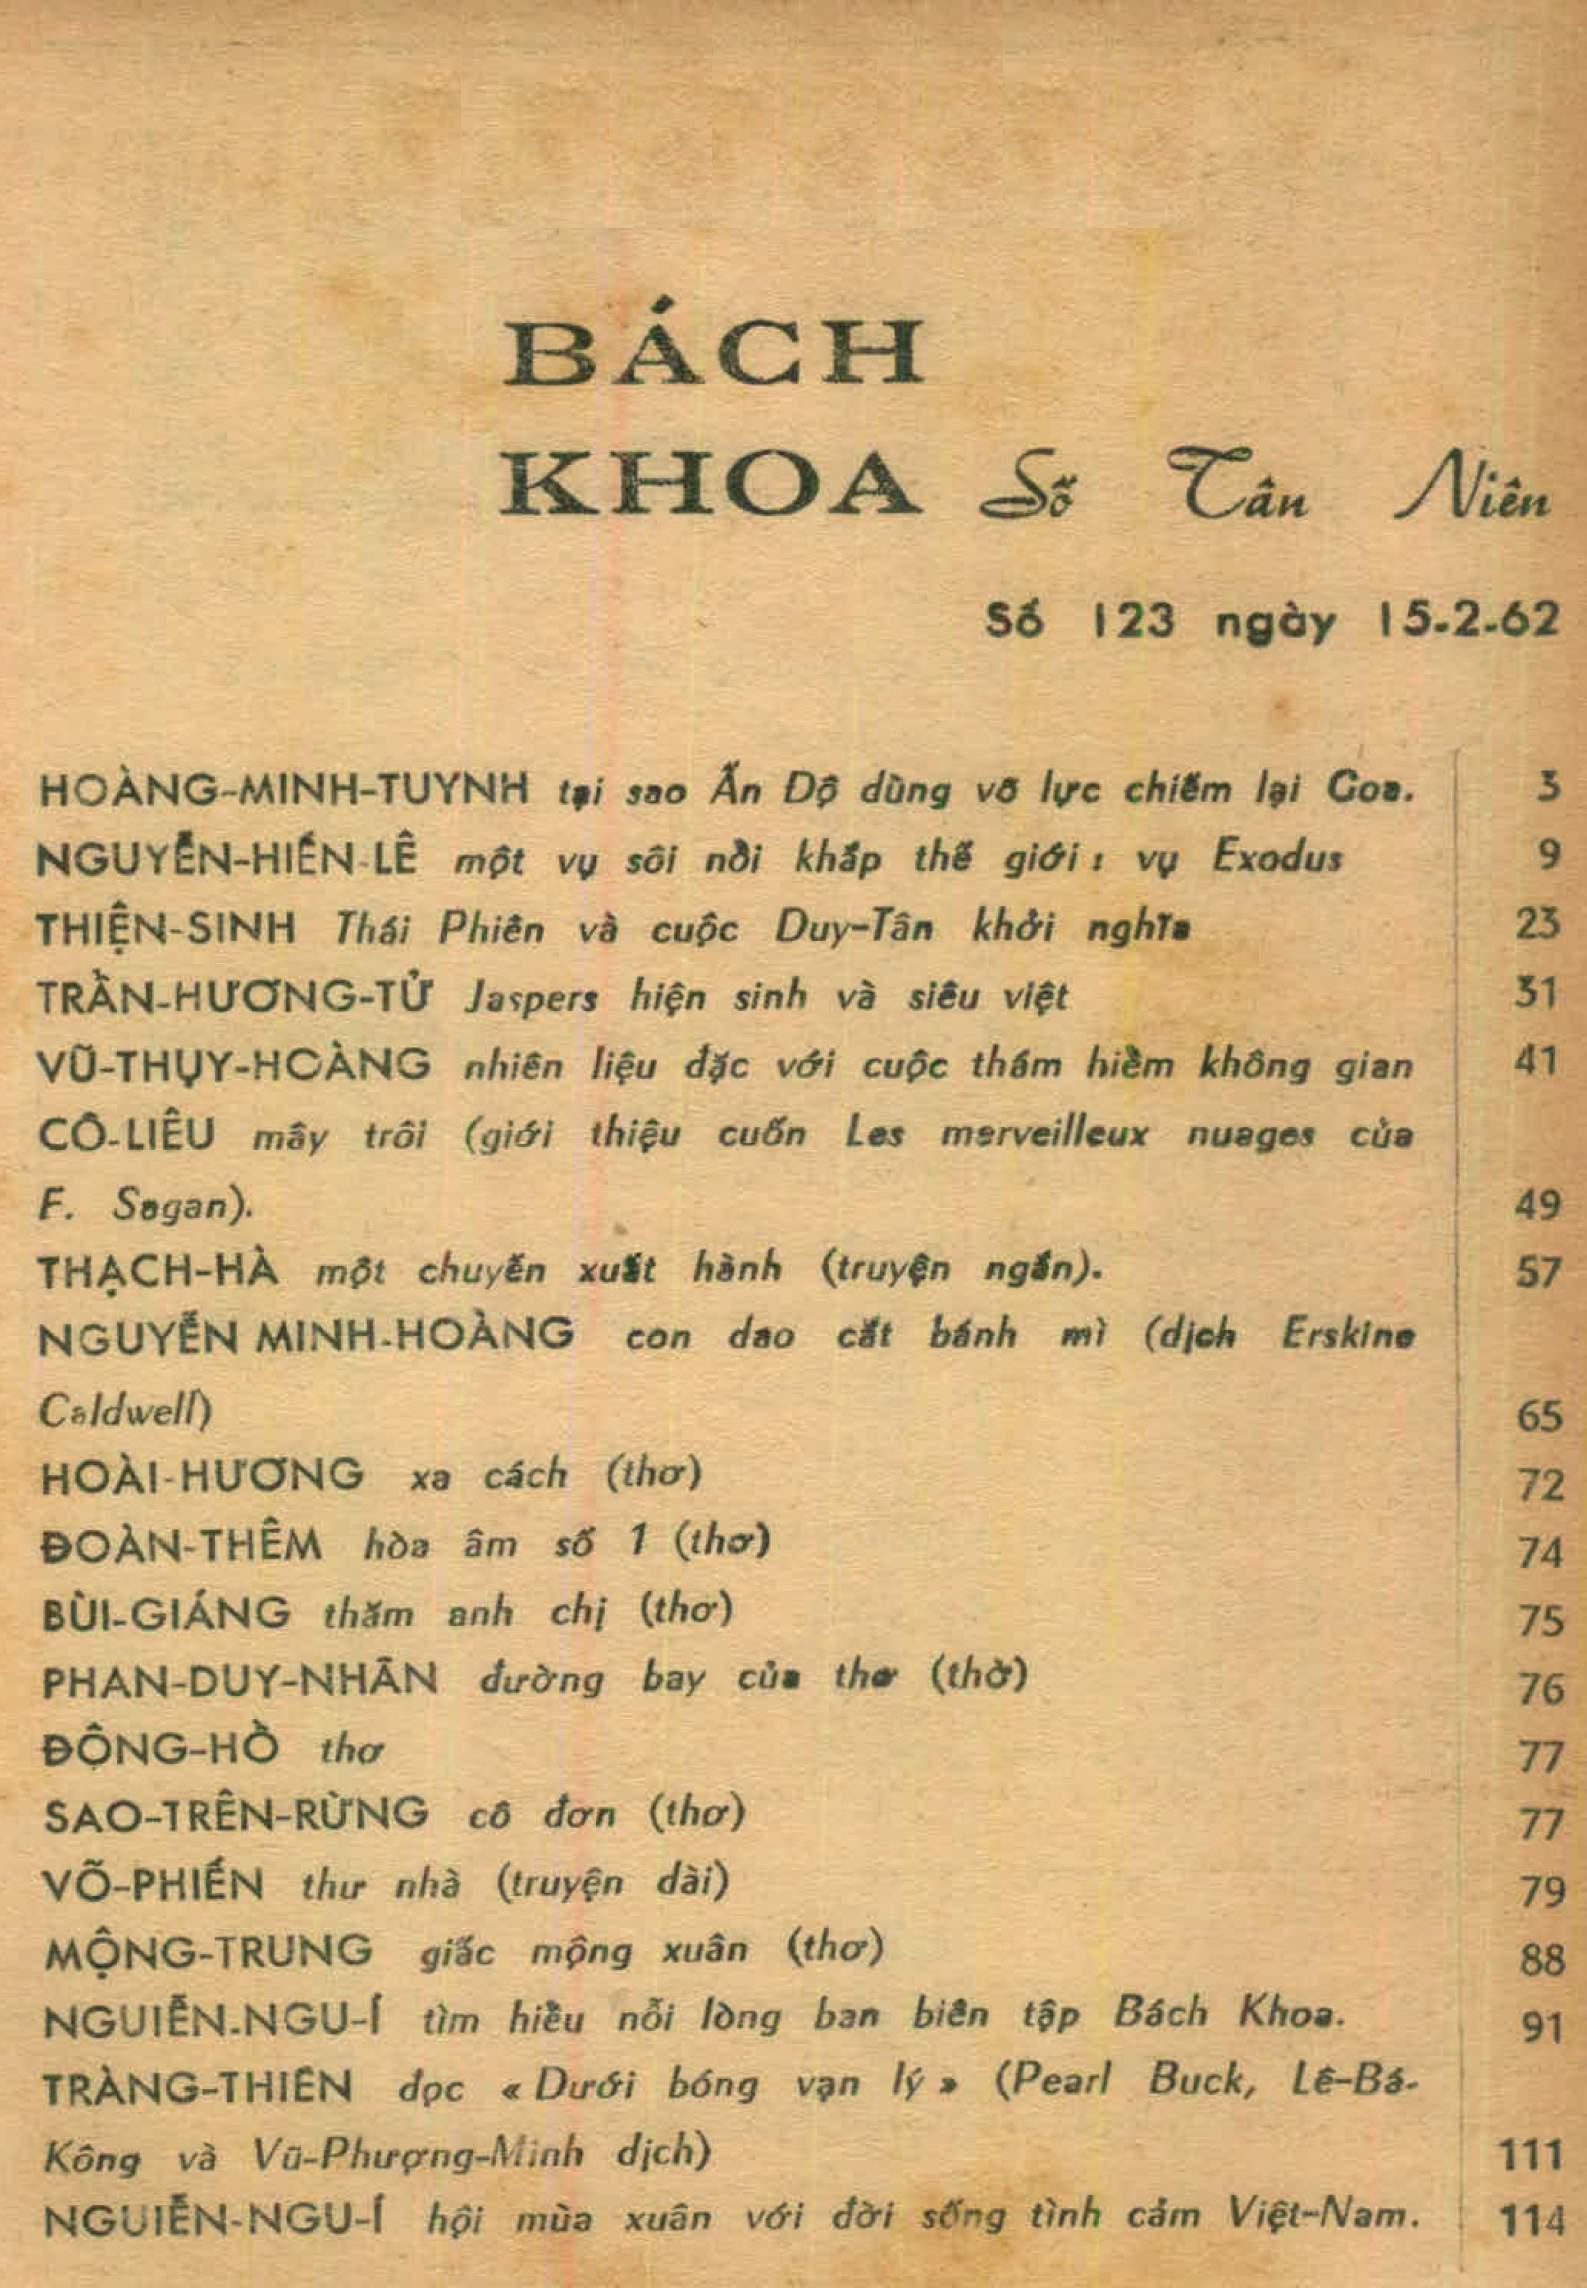 BÁCH
KHOA Số Tân Niên
Số 123 ngày 15-2-62
HOÀNG-MINH-TUYNH tại sao Ấn Độ dùng võ lực chiếm lại Goa. 3
NGUYỄN-HIẾN-LÊ một vụ sôi nổi khắp thế giới : vụ Exodus 9
THIỆN-SINH Thái Phiên và cuộc Duy-Tân khởi nghĩa 23
TRẦN-HƯƠNG-TỬ Jaspers hiện sinh và siêu việt 31
VŨ-THỤY-HOÀNG nhiên liệu đặc với cuộc thám hiểm không gian 41
CÔ-LIÊU mây trôi (giới thiệu cuốn Les merveilleux nuages của
F. Sagan). 49
THẠCH-HÀ một chuyến xuất hành (truyện ngắn). 57
NGUYỄN MINH-HOÀNG con dao cắt bánh mì (dịch Erskine
Caldwell) 65
HOÀI-HƯƠNG xa cách (thơ) 72
ĐOÀN-THÊM hòa âm số 1 (thơ) 74
BÙI-GIÁNG thăm anh chị (thơ) 75
PHAN-DUY-NHÂN đường bay của thơ (thờ) 76
ĐÔNG-HỒ thơ 77
SAO-TRÊN-RỪNG cô đơn (thơ) 77
VÕ-PHIẾN thư nhà (truyện dài) 79
MỘNG-TRUNG giấc mộng xuân (thơ) 88
NGUIỄN-NGU-Í tìm hiểu nỗi lòng ban biên tập Bách Khoa. 91
TRÀNG-THIÊN đọc « Dưới bóng vạn lý » (Pearl Buck, Lê-Bá-
Kông và Vũ-Phượng-Minh dịch) 111
NGUIỄN-NGU-Í hội mùa xuân với đời sống tình cảm Việt-Nam. 114